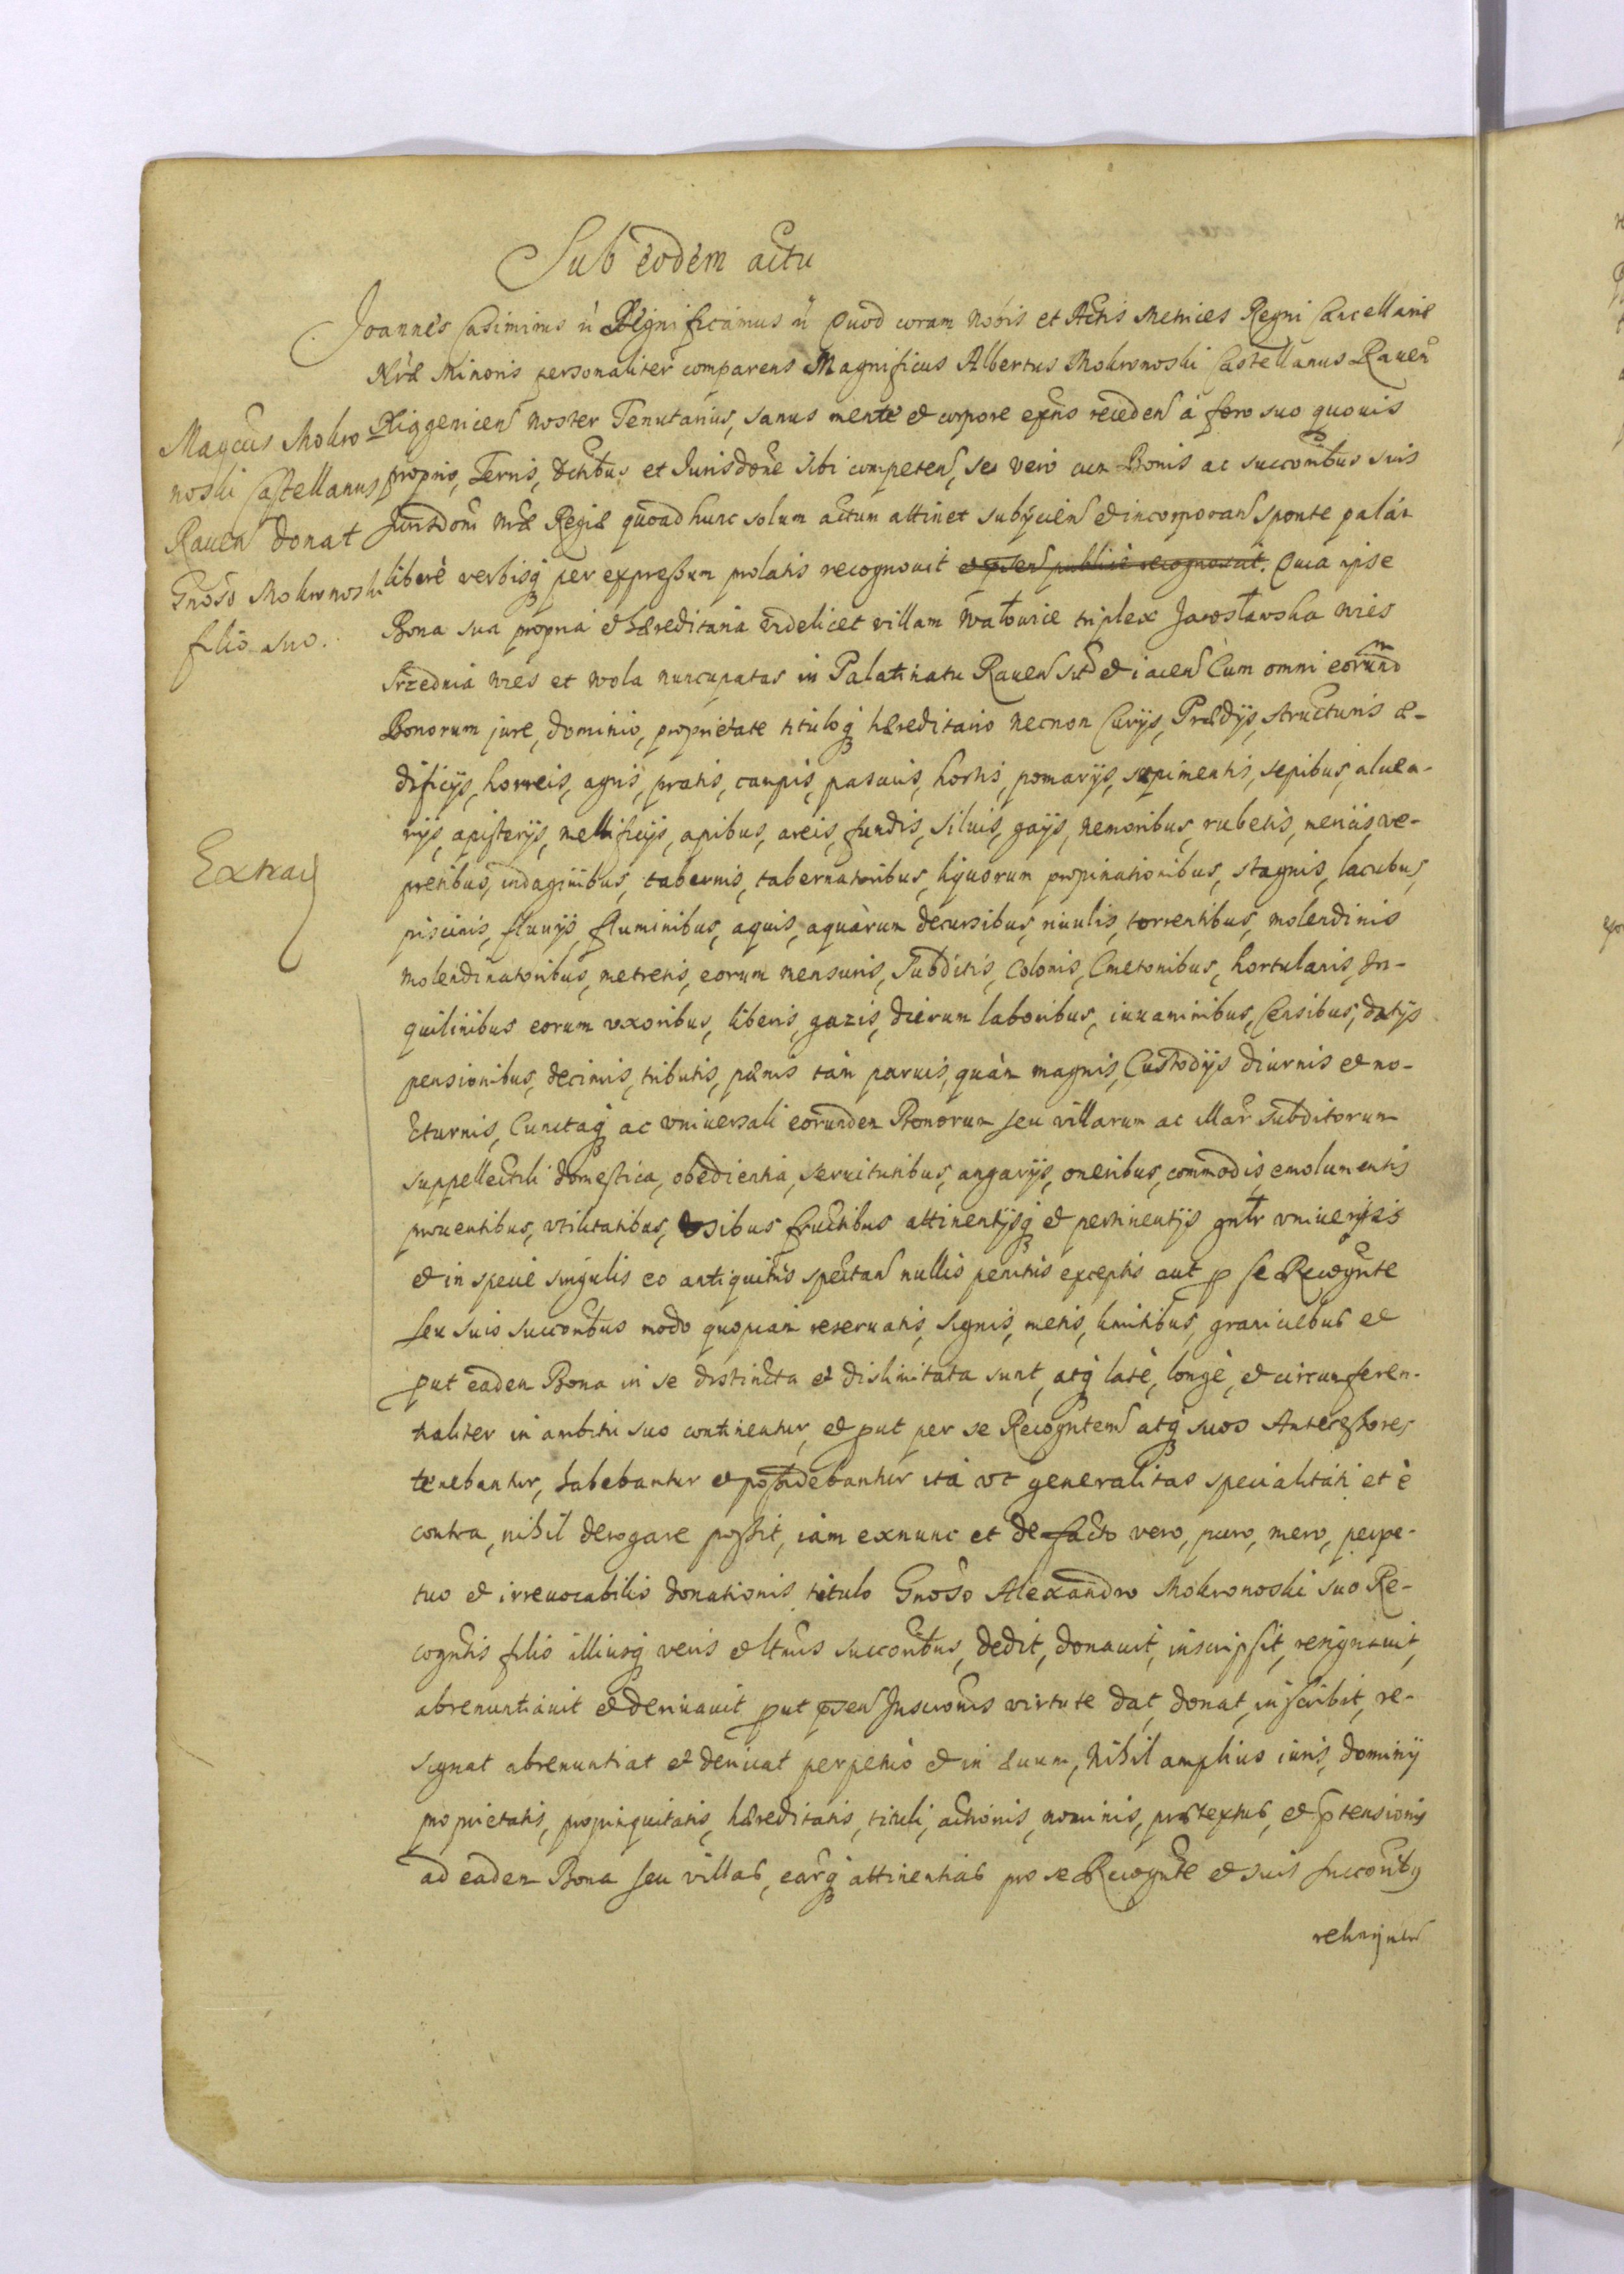 Sub eodem actu
Joannes Casimirus n Significamus n Quod coram nobis et Actis Metrices Regni Cancellariæ
Nræ Minoris personaliter comparens Magnificus Albertus Mokronoski Castellanus Rauen
noster Tenutarius, sanus mente et corpore exñs receden à foro suo quouis
proprio, Terris, et Jurisdone sibi competen, se vero cum Bonis ac succoribus suis
Jurisdoni nræ Regiæ quoad hunc solum actum attinet subijcien et incorporan sponte palàm
liberè verbisq per expressum prolatis recognouit et psen publicè recognoscit. Quia ipse
Bona sua propria et hæreditaria videlicet villam Wałowice triplex Jarosławska wies
Srzednia wies et Wola nuncupatas in Palatinatu Rauen sit et iacen Cum omni eorund
Bonorum jure, dominio, proprietate tituloq hæreditario necnon Curijs, Prædijs, structuris æ-
dificijs, horreis, agris, pratis, campis, pascuis, hortis, pomarijs, sæpimentis, sepibus, aluea-
rijs, apisterijs, mellificijs, apibus, areis, fundis, siluis, gaijs, nemoribus, rubetis, mericis, ve-
pretibus, indaginibus, tabernis, tabernatoribus, liquorum propinationibus, stagnis, lacubus,
piscinis, fluuijs, fluminibus, aquis, aquàrum decursibus, riuulis, torrentibus, molendinis
molendinatoribus, metretis, eorum mensuris, Subditis, Colonis, Cmetonibus, hortulanis, In-
quilinibus eorum vxoribus, liberis, gazis, dierum laboribus, iuuaminibus, Censibus, datijs
pensionibus, decimis, tributis, pænis tàm paruis, quàm magnis, Custodijs diurnis et no-
cturnis, Cunctaq ac vniuersali eorundem Bonorum seu villarum ac illar subditorum
suppellectili domestica, obedientia, seruitutibus, angarijs, oneribus, commodis emolumentis
prouentibus, vtilitatibus, vsibus fructibus attinentijsq et pertinentijs gntr vniuersis
et in specie singulis eo antiquitùs spectan nullis penitùs exceptis aut p se Recognte
seu suis succoribus modo quopiam reseruatis, signis, metis, limitibus, graniciebus et
put eadem Bona in se distincta et dislimitata sunt, atq latè, longè, et circumferen-
tialiter in ambitu suo continentur, et put per se Recogntem atq suos Antecessores
tenebantur, habebantur et possidebantur ità vt generalitas specialitati et è
contra, nihil derogare possit, iàm exnunc et de facto vero, puro, mero, perpe-
tuo et irreuocabilis donationis titulo Gnoso Alexandro Mokronoski suo Re-
cogntis filio illiusq veris et ltmis succoribus, dedit, donauit, inscripsit, resignauit,
abrenuntiauit et deriuauit put psen Inscronis virtute dat, donat, inscribit, re-
signat abrenuntiat et deriuat perpetuò et in æuum, Nihil amplius iuris, dominij
proprietatis, propinquitatis, hæreditatis, tituli, actionis, nominis, prætextus, et ptensionis
ad eadem Bona seu villas, earq attinentias pro se Recognte et suis succoribq
Magcus Mokro
noski Castellanus
Rauen donat
Gnoso Mokronoski
filio suo.
Extra